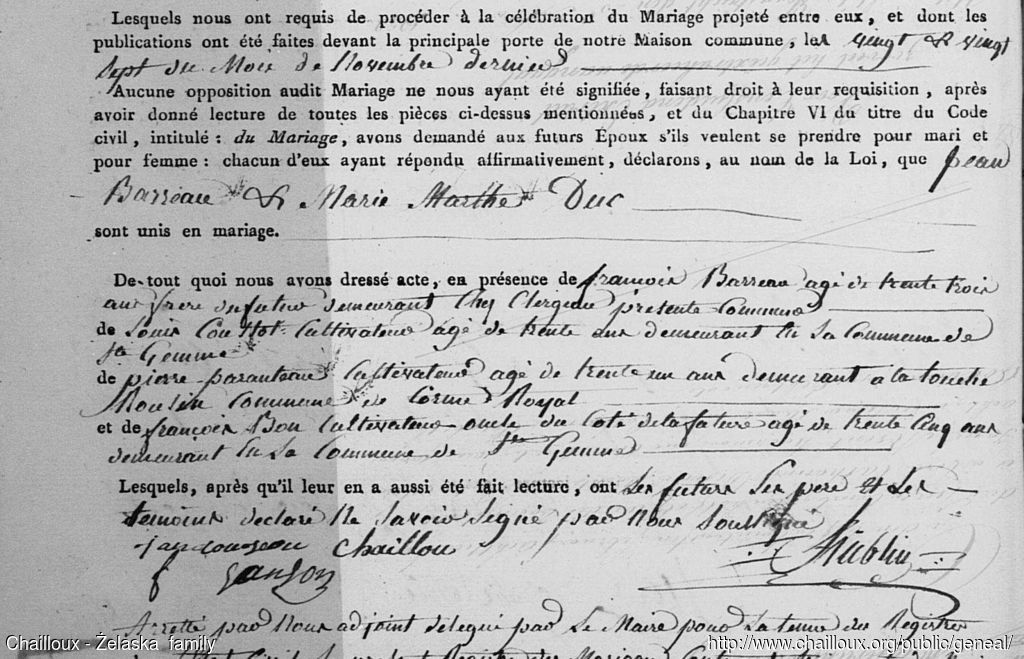 Lesquels nous ont requis de procéder à la célébration du Mariage projeté entre eux, et dont les
publications ont été faites devant la principale porte de notre Maison commune, les vingt & vingt
sept du Mois de Novembre dernier
Aucune opposition audit Mariage ne nous ayant été signifiée, faisant droit à leur requisition, après
avoir donné lecture de toutes les pièces ci-dessus mentionnées, et du Chapitre VI du titre du Code
civil, intitulé : du Mariage, avons demandé aux futurs Époux s'ils veulent se prendre pour mari et
pour femme : chacun d'eux ayant répondu affirmativement, déclarons, au nom de la Loi, que Jean
Barreau & Marie Marthe Duc
sont unis en mariage.
De tout quoi nous avons dressé acte, en présence de françois Barreau agé de trente trois
ans frere du futur demeurant Chez Clergeau presente Commune
de Louis Cultivateur agé de trente ans demeurant En La Commune de
Ste Gemme
de pierre paranteau Cultivateur agé de trente un ans demeurant a la touche
Moulin Commune de Corme Royal
et de françois Bon Cultivateur oncle du Coté de la future agé de trente Cinq ans
demeurant En La Commune de Ste Gemme
Lesquels, après qu'il leur en a aussi été fait lecture, ont Les futurs Les pere Et Les
temoins declaré Ne Savoir Signé par Nous Soussigné
Chaillou
Arretté par Nous adjoint delegué par Le Maire pour La tenue des Registres
Chailloux - Żelaska family
http://www.chailloux.org/public/geneal/